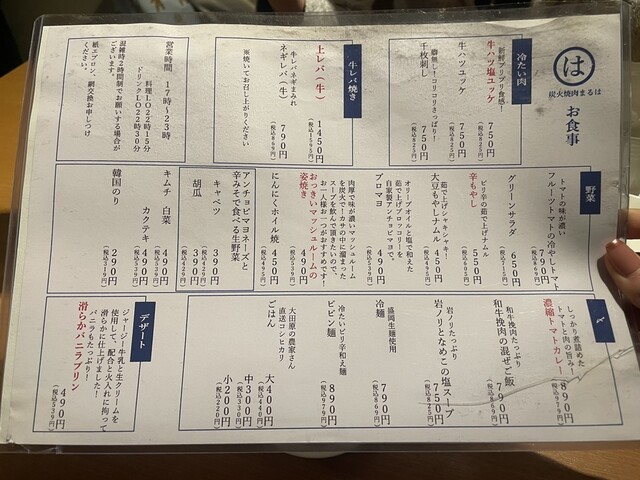 は
炭火焼肉まるは
お食事
冷たい肉
新鮮プリプリ食感！
牛ハツ塩ユッケ
750円
（税込825円）
牛ハツユッケ
750円
（税込825円）
癖無し！コリコリさっぱり！
千枚刺し
750円
（税込825円）
牛レバ焼き
上レバ（牛）
1450円
（税込1595円）
牛レバ、ネギまみれ
ネギレバ（牛）
790円
（税込869円）
※焼いてお召し上がりください
営業時間 17時〜23時
料理LO22時15分
ドリンクLO22時30分
混雑時2時間制でお願いする場合が
ございます。
紙エプロン、網交換お申しつけ
ください。
野菜
トマトの味が濃い
フルーツトマトの冷やしトマト
790円
（税込869円）
グリーンサラダ
650円
（税込715円）
ピリ辛の茹で上げナムル
辛もやし
550円
（税込605円）
茹で上げシャキシャキ！
大豆もやしナムル
450円
（税込495円）
オリーブオイルと塩で和えた
茹で上げブロッコリーを
自家製アンチョビマヨで。
ブロマヨ
490円
（税込539円）
肉厚で味が濃いマッシュルーム
を炭火で！カサの中に溜まった
スープを飲んで頂きたいので、
お一人様お一つがおすすめです！
おっきいマッシュルームの
姿焼き
490円
（税込539円）
にんにくホイル焼
450円
（税込495円）
アンチョビマヨネーズと
辛みそで食べる生野菜
キャベツ
390円
（税込429円）
胡瓜
390円
（税込429円）
キムチ 白菜
490円
（税込539円）
カクテキ
490円
（税込539円）
韓国のり
290円
（税込319円）
〆
しっかり煮詰めた
トマトと肉の旨み！
濃縮トマトカレー
890円
（税込979円）
和牛挽肉たっぷり
和牛挽肉の混ぜご飯
790円
（税込869円）
岩ノリたっぷり
岩ノリとなめこの塩スープ
750円
（税込825円）
盛岡生麺使用
冷麺
790円
（税込869円）
冷たいピリ辛和え麺
ビビン麺
890円
（税込979円）
大田原の農家さん
直送コシヒカリ
ごはん
大400円
（税込440円）
中300円
（税込330円）
小200円
（税込220円）
デザート
ジャージー牛乳と生クリームを
使用して、配合と火入れに拘って
滑らかに仕上げました！
バニラもたっぷり！
滑らかバニラプリン
490円
（税込539円）